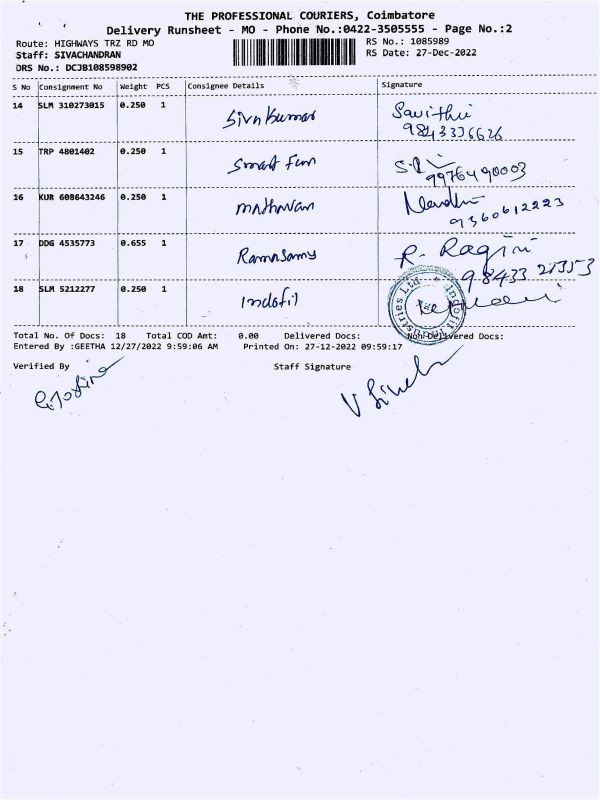 THE PROFESSIONAL COURIERS, Coimbatore
Delivery Runsheet - MO - Phone No.:0422-3505555 - Page No.:2
Route: HIGHWAYS TRZ RD MO RS No.: 1085989
Staff: SIVACHANDRAN RS Date: 27-Dec-2022
DRS No.: DCJB108598902
S No Consignment No Weight PCS Consignee Details Signature
14 SLM 310273015 0.250 1 Siva Kumar Savithri
9843336626
15 TRP 4801402 0.250 1 Smart Fun
9976490003
16 KUR 608643246 0.250 1 Mathavan
9360612223
17 DDG 4535773 0.655 1 Ramasamy R. Ragini
98433 21353
18 SLM 5212277 0.250 1 Indofil
Total No. Of Docs: 18 Total COD Amt: 0.00 Delivered Docs: Non-Delivered Docs:
Entered By :GEETHA 12/27/2022 9:59:06 AM Printed On: 27-12-2022 09:59:17
Verified By Staff Signature